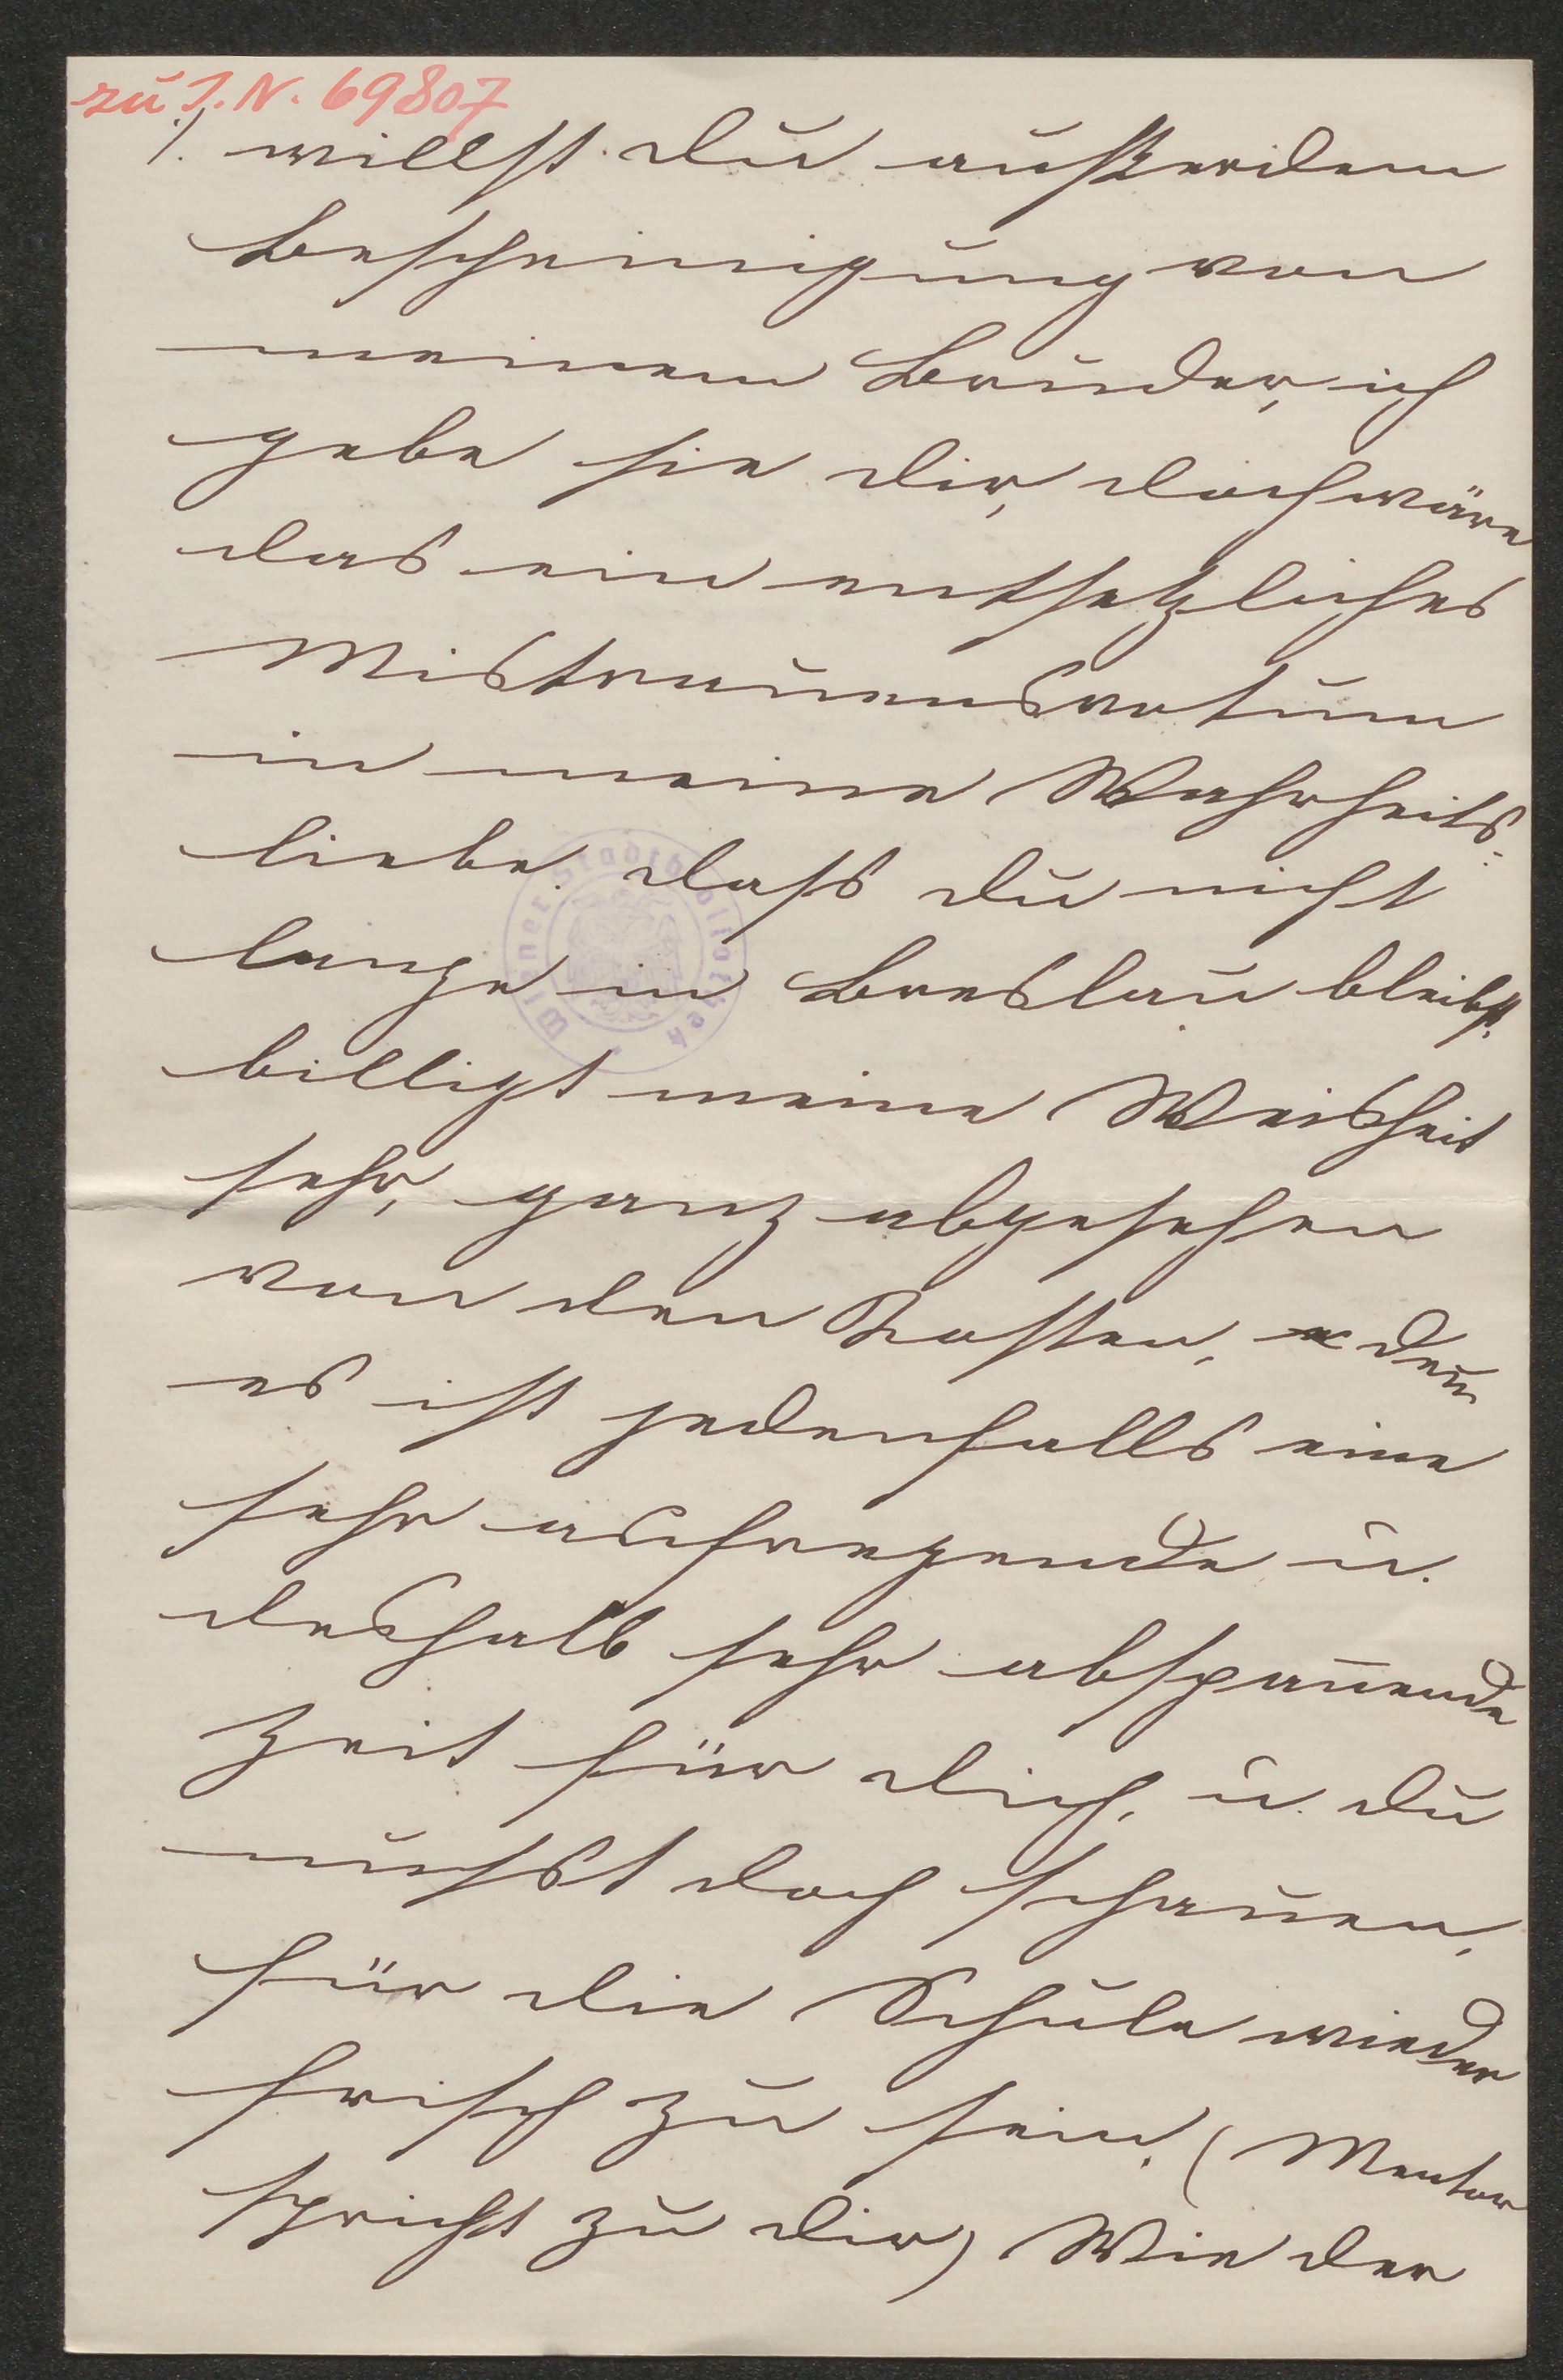 zu I.N. 69807
/. willst du außerdem
Bescheinigung von
meinem Bruder, ich
gebe sie dir, doch wäre
das ein entsetzliches
Mistrauensvotum
in meine Wahrheits-
liebe. dass du nicht
lange in Breslau bleibst.
billigt meine Weisheit
sehr, ganz abgesehen
von den Kosten, denn
es ist jedenfalls eine
sehr aufregende u.
deshalb sehr abspannende
Zeit für dich, u. du
musst doch schauen,
für die Schule wieder
frisch zu sein. (Mentor
spricht zu dir) Wie der
Wiener Stadtbibliothek